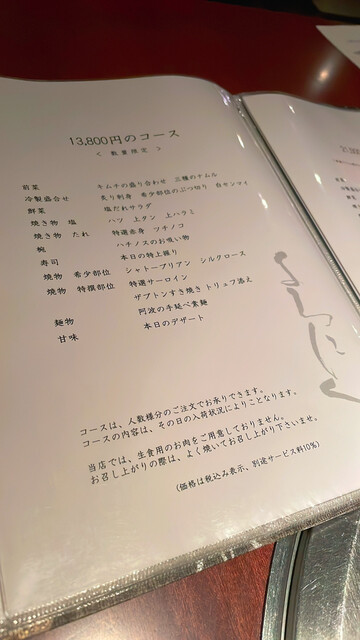 13,800円のコース
< 数量限定 >
前菜 キムチの盛り合わせ 三種のナムル
冷製盛合せ 炙り刺身 希少部位のぶつ切り 白センマイ
鮮菜 塩だれサラダ
焼き物 塩 ハツ 上タン 上ハラミ
焼き物 たれ 特選赤身 ツチノコ
椀 ハチノスのお吸い物
寿司 本日の特上握り
焼物 希少部位 シャトーブリアン シルクロース
焼物 特撰部位 特選サーロイン
ザブトンすき焼き トリュフ添え
麺物 阿波の手延べ素麺
甘味 本日のデザート
コースは、人数様分のご注文でお承りできます。
コースの内容は、その日の入荷状況によりことなります。
当店では、生食用のお肉をご用意しておりません。
お召し上がりの際は、よく焼いてお召し上がり下さいませ。
(価格は税込み表示、別途サービス料10%)